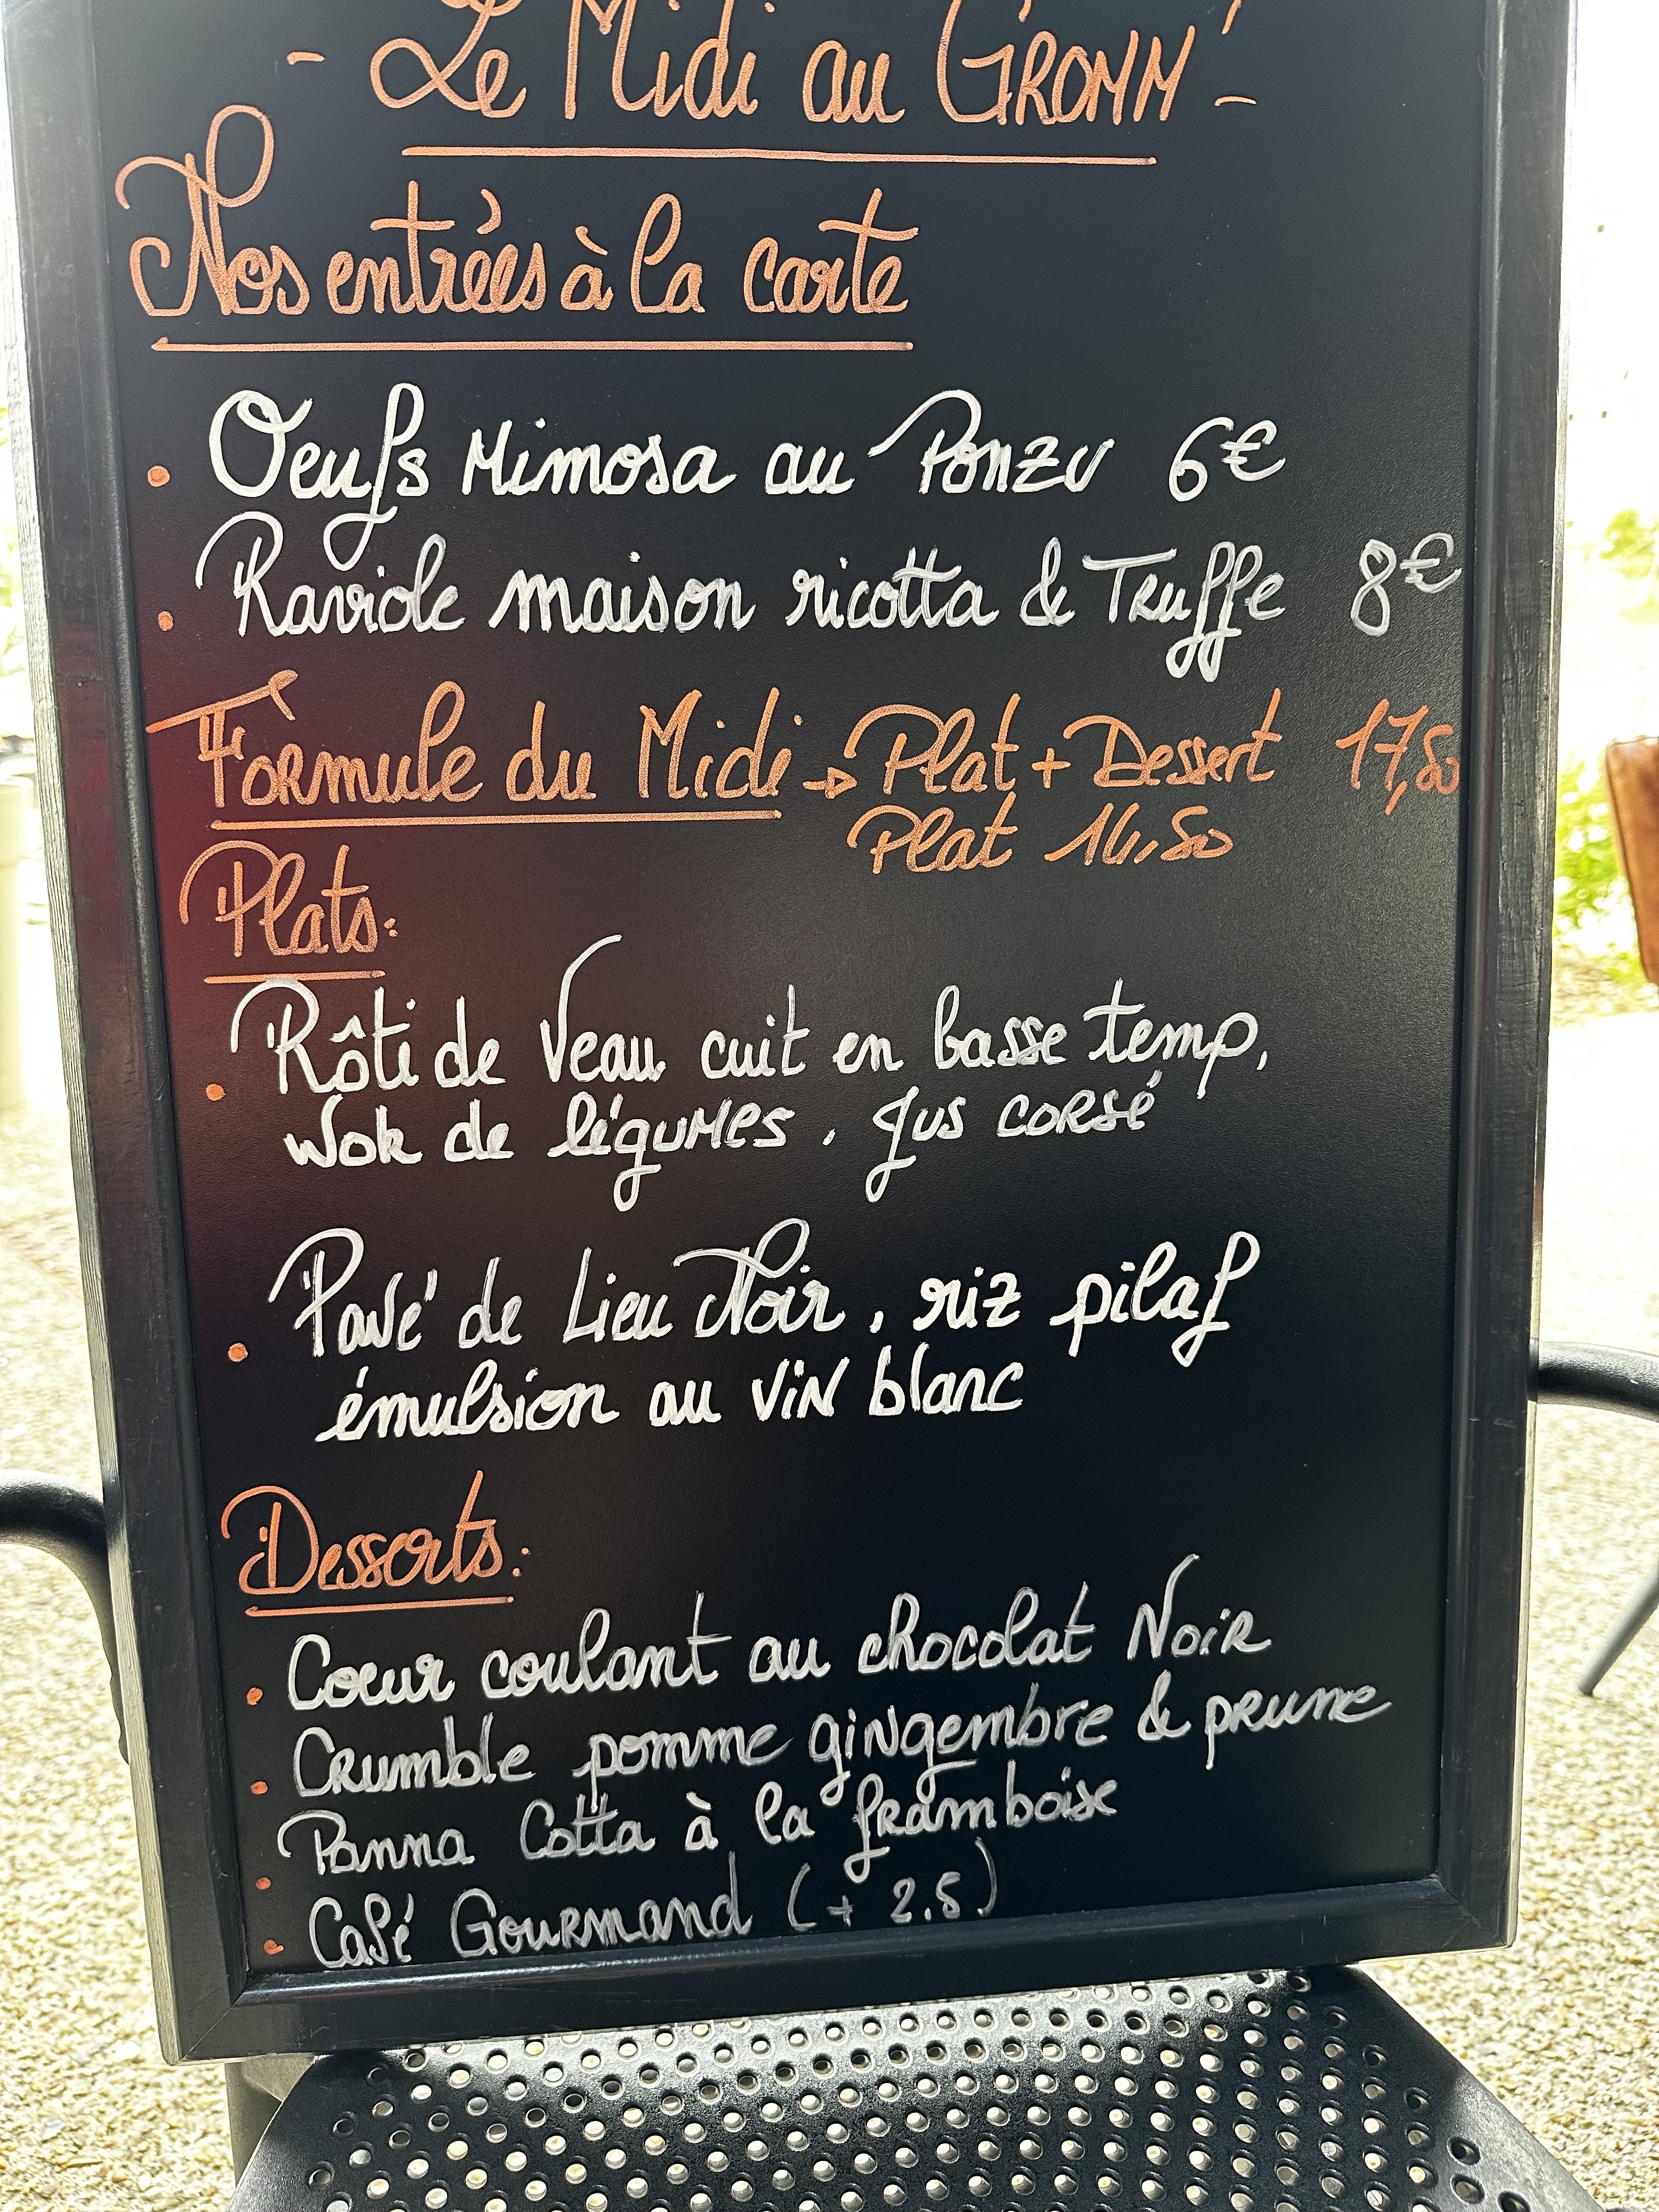 - Le Midi au GROMM' -
Nos entrées à la carte
• Oeufs Mimosa au Ponzu 6€
• Raviole maison ricotta & Truffe 8€
Formule du Midi → Plat + Dessert 17,50
Plat 14,50
Plats:
• Rôti de Veau cuit en basse temp,
Wok de légumes, Jus corsé
• Pavé de Lieu Noir, riz pilaf
émulsion au vin blanc
Desserts:
• Coeur coulant au chocolat Noir
• Crumble pomme gingembre & prune
• Panna Cotta à la framboise
• Café Gourmand (+ 2.5)